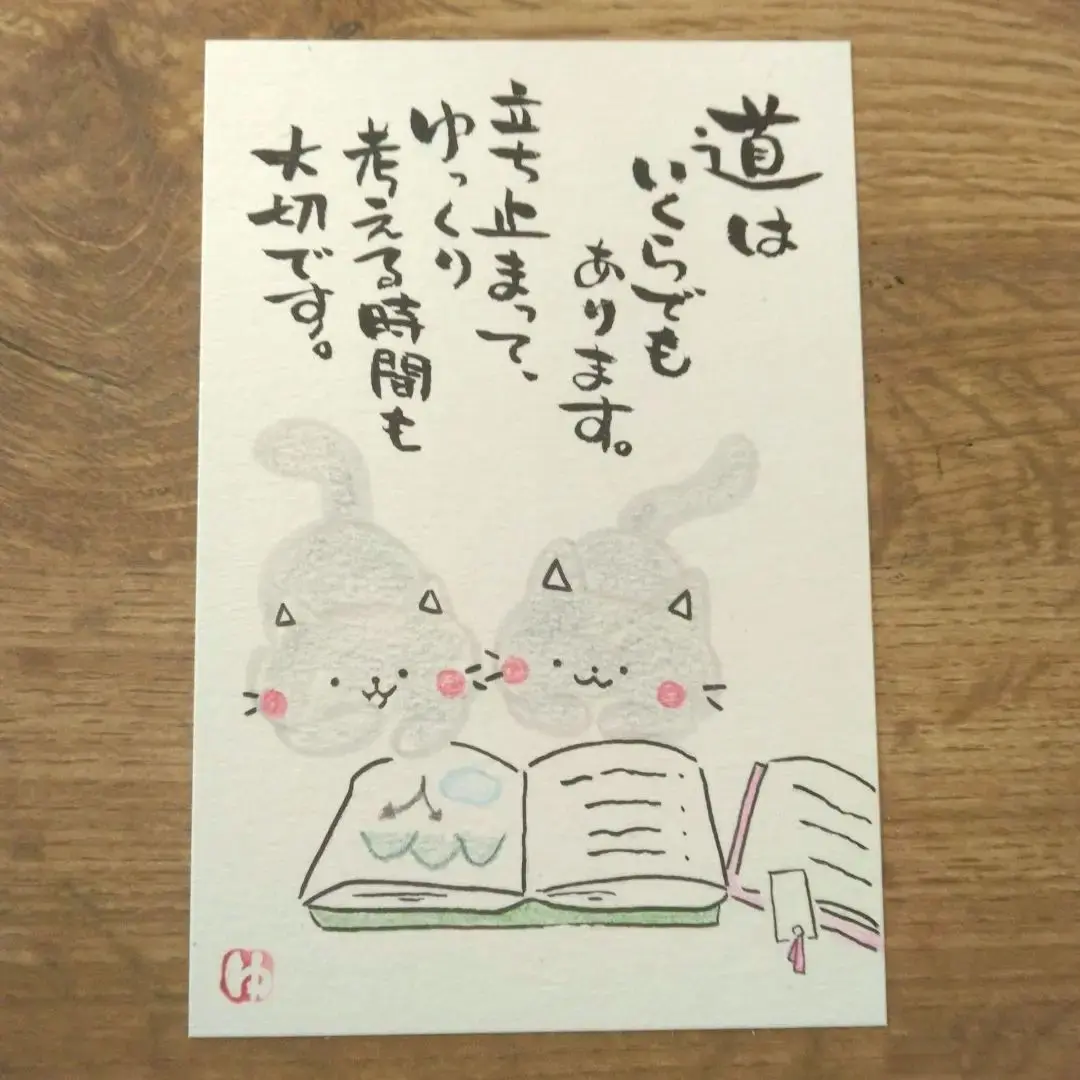 道は
いくらでも
あります。
立ち止まって、
ゆっくり
考える時間も
大切です。
ゆ